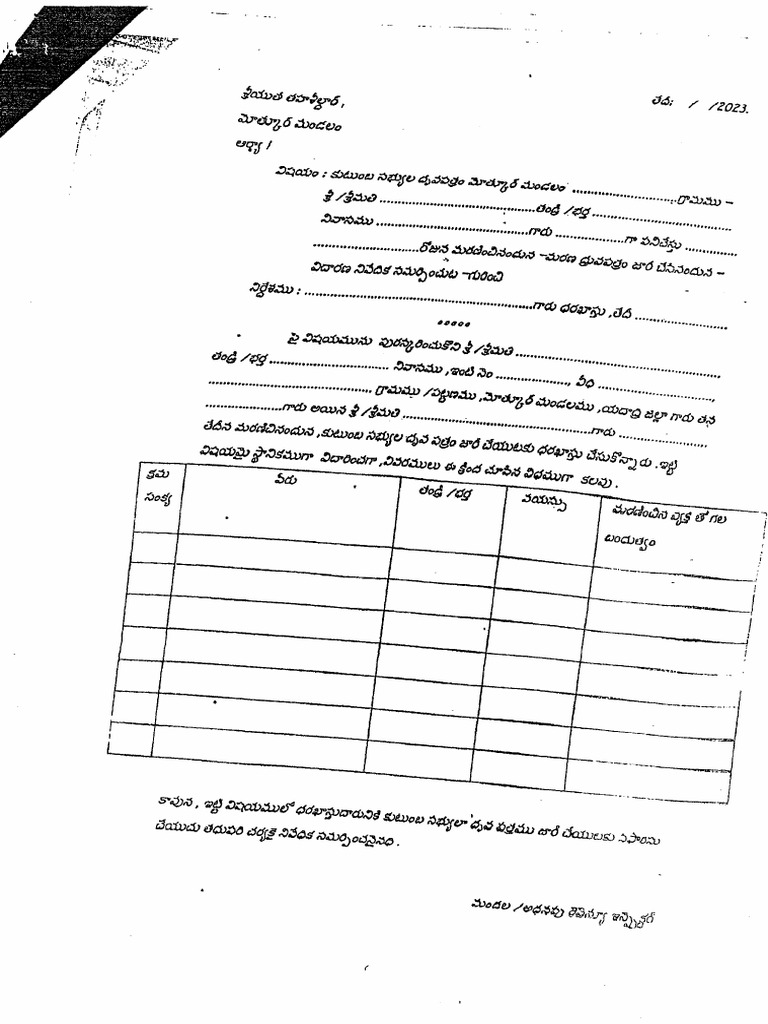 శ్రీయుత తహశీల్దార్,
తేది: / /2023.
మోత్కూర్ మండలం
ఆర్యా !
విషయం : కుటుంబ సభ్యుల ధృవపత్రం మోత్కూర్ మండలం ........................గ్రామము –
శ్రీ /శ్రీమతి ....................................తండ్రి /భర్త ................................
నివాసము ....................................గారు ................గా పనిచేస్తు ............
........................రోజున మరణించినందున –మరణ ధ్రువపత్రం జారీ చేసినందున –
విచారణ నివేదిక సమర్పించుట –గురించి
నిర్దేశము : ......................................................గారు ధరఖాస్తు ,తేది ......................
*****
పై విషయమును పురస్కరించుకొని శ్రీ /శ్రీమతి ................................................
తండ్రి /భర్త ............................ నివాసము ,ఇంటి నెం ................., వీధి ...........................,
...................................... గ్రామము /పట్టణము ,మోత్కూర్ మండలము ,యదాద్రి జిల్లా గారు తన
..................గారు అయిన శ్రీ /శ్రీమతి ...........................................గారు ....................
తేదీన మరణించినందున ,కుటుంబ సభ్యుల ధృవ పత్రం జారీ చేయుటకు ధరఖాస్తు చేసుకొన్నారు .ఇట్టి
విషయమై స్థానికముగా విచారించగా ,వివరములు ఈ క్రింద చూపిన విధముగా కలవు .
క్రమ సంఖ్య
పేరు
తండ్రి /భర్త
వయస్సు
మరణించిన వ్యక్తి తో గల
బందుత్వం
కావున , ఇట్టి విషయములో ధరఖాస్తుదారునికి కుటుంబ సభ్యులా ధృవ పత్రము జారీ చేయుటకు సిఫారసు
చేయుచు తదుపరి చర్యకై నివేదిక సమర్పించనైనది .
మండల /అదనపు రెవెన్యూ ఇన్స్పెక్టర్